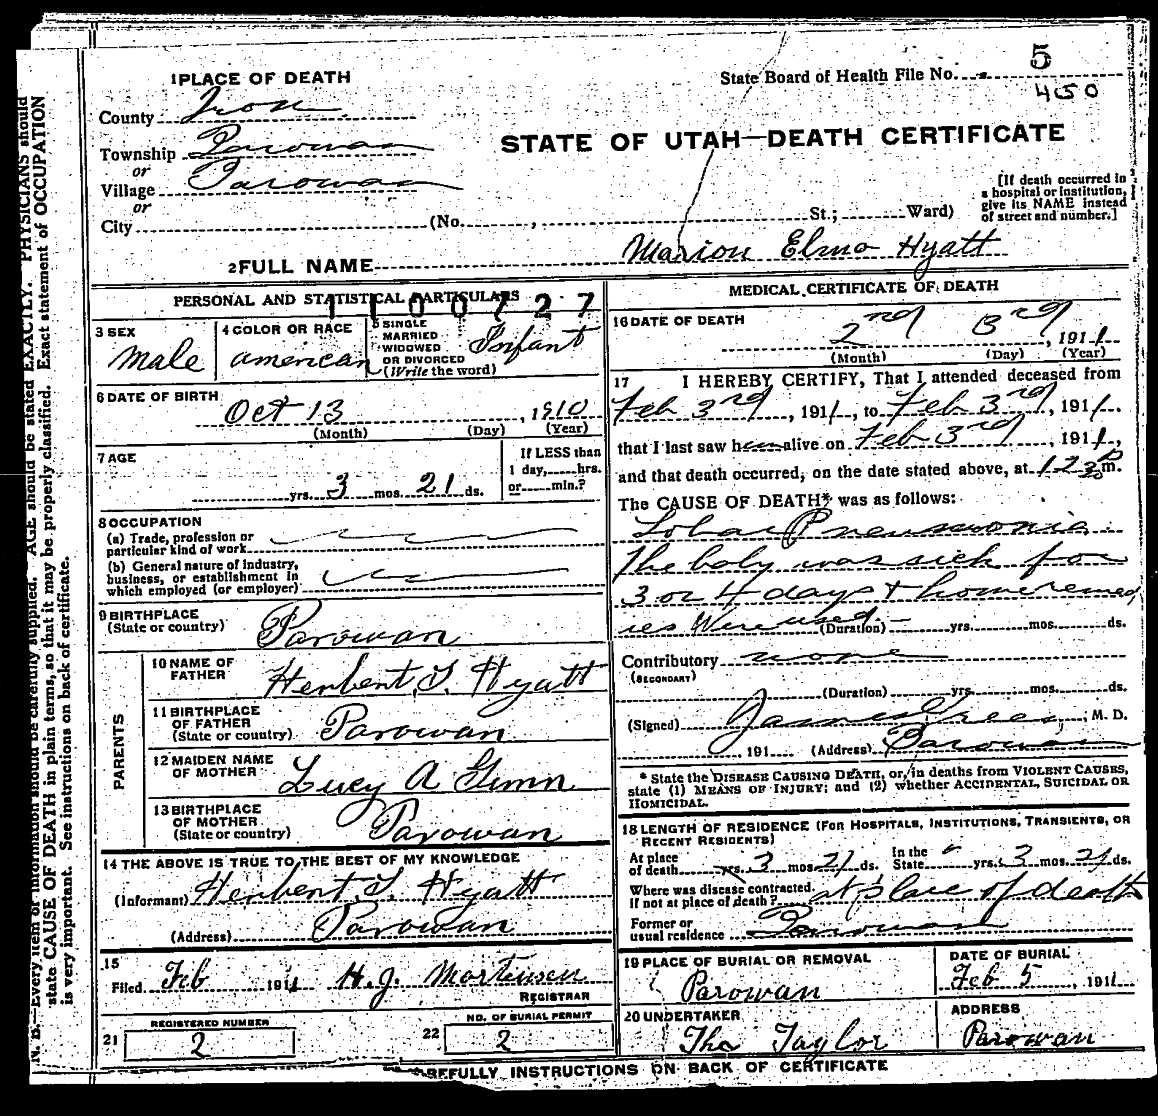 1 PLACE OF DEATH
State Board of Health File No. 5
450
County Iron
STATE OF UTAH—DEATH CERTIFICATE
Township Parowan
or
Village Parowan
or
City (No. , St.; Ward)
[If death occurred in
a hospital or institution,
give its NAME instead
of street and number.]
2 FULL NAME Marion Elmo Hyatt
PERSONAL AND STATISTICAL PARTICULARS
1100727
3 SEX
Male
4 COLOR OR RACE
american
5 SINGLE
MARRIED
WIDOWED
OR DIVORCED
(Write the word)
Infant
6 DATE OF BIRTH
Oct 13, 1910
(Month) (Day) (Year)
7 AGE
yrs. 3 mos. 21 ds.
If LESS than
1 day, hrs.
or min.?
8 OCCUPATION
(a) Trade, profession or
particular kind of work
(b) General nature of industry,
business, or establishment in
which employed (or employer)
9 BIRTHPLACE
(State or country)
Parowan
PARENTS
10 NAME OF
FATHER
Herbert T. Hyatt
11 BIRTHPLACE
OF FATHER
(State or country)
Parowan
12 MAIDEN NAME
OF MOTHER
Lucy A
13 BIRTHPLACE
OF MOTHER
(State or country)
Parowan
14 THE ABOVE IS TRUE TO THE BEST OF MY KNOWLEDGE
(Informant) Herbert T. Hyatt
(Address) Parowan
15
Filed Feb 1911 H.J. Mortensen
REGISTRAR
21 REGISTERED NUMBER
2
22 NO. OF BURIAL PERMIT
2
MEDICAL CERTIFICATE OF DEATH
16 DATE OF DEATH
2nd 3rd, 1911
(Month) (Day) (Year)
17 I HEREBY CERTIFY, That I attended deceased from
Feb 3rd, 1911, to Feb 3rd, 1911.
that I last saw h alive on Feb 3rd, 1911,
and that death occurred, on the date stated above, at 12 30 P m.
The CAUSE OF DEATH* was as follows:
Lobar Pneumonia.
The baby was sick for
3 or 4 days + home remed
ies were used.
(Duration) yrs. mos. ds.
Contributory none
(SECONDARY)
(Duration) yrs. mos. ds.
(Signed) James Green, M. D.
, 191 (Address) Parowan
* State the DISEASE CAUSING DEATH, or, in deaths from VIOLENT CAUSES,
state (1) MEANS OF INJURY; and (2) whether ACCIDENTAL, SUICIDAL OR
HOMICIDAL.
18 LENGTH OF RESIDENCE (FOR HOSPITALS, INSTITUTIONS, TRANSIENTS, OR
RECENT RESIDENTS)
At place
of death yrs. 3 mos. 21 ds.
In the
State yrs. 3 mos. 21 ds.
Where was disease contracted,
If not at place of death? At place of death
Former or
usual residence Parowan
19 PLACE OF BURIAL OR REMOVAL
Parowan
DATE OF BURIAL
Feb 5, 1911
20 UNDERTAKER
Tho Taylor
ADDRESS
Parowan
CAREFULLY INSTRUCTIONS ON BACK OF CERTIFICATE
N. B.—Every item of information should be carefully supplied. AGE should be stated EXACTLY. PHYSICIANS should
state CAUSE OF DEATH in plain terms, so that it may be properly classified. Exact statement of OCCUPATION
is very important. See instructions on back of certificate.